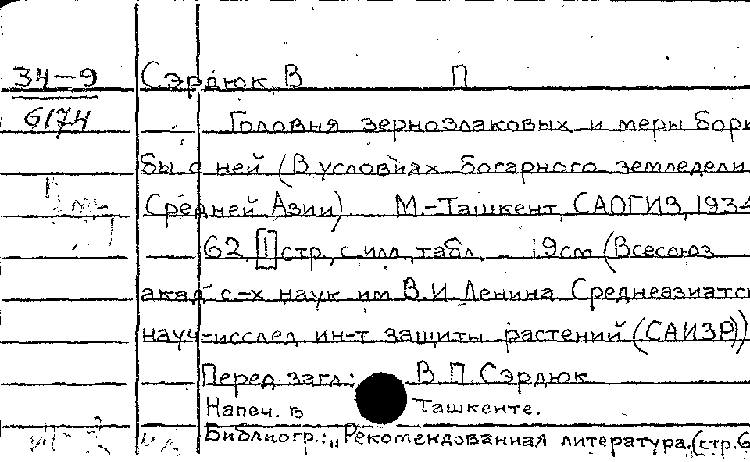 34-9 Сэрдюк В П
6174 Головня зернозлаковых и меры борь
бы с ней (В условиях богарного земледели
Средней Азии) М.-Ташкент, САОГИЗ, 1934
62, [1] стр, с илл, табл. 19см (Всесоюз
акад с-х наук им В.И Ленина Среднеазиатс
науч-исслед ин-т защиты растений (САИЗР))
Перед загл: В.П. Сэрдюк
Напеч. в Ташкенте.
Библиогр.: „Рекомендованная литература„(стр.6